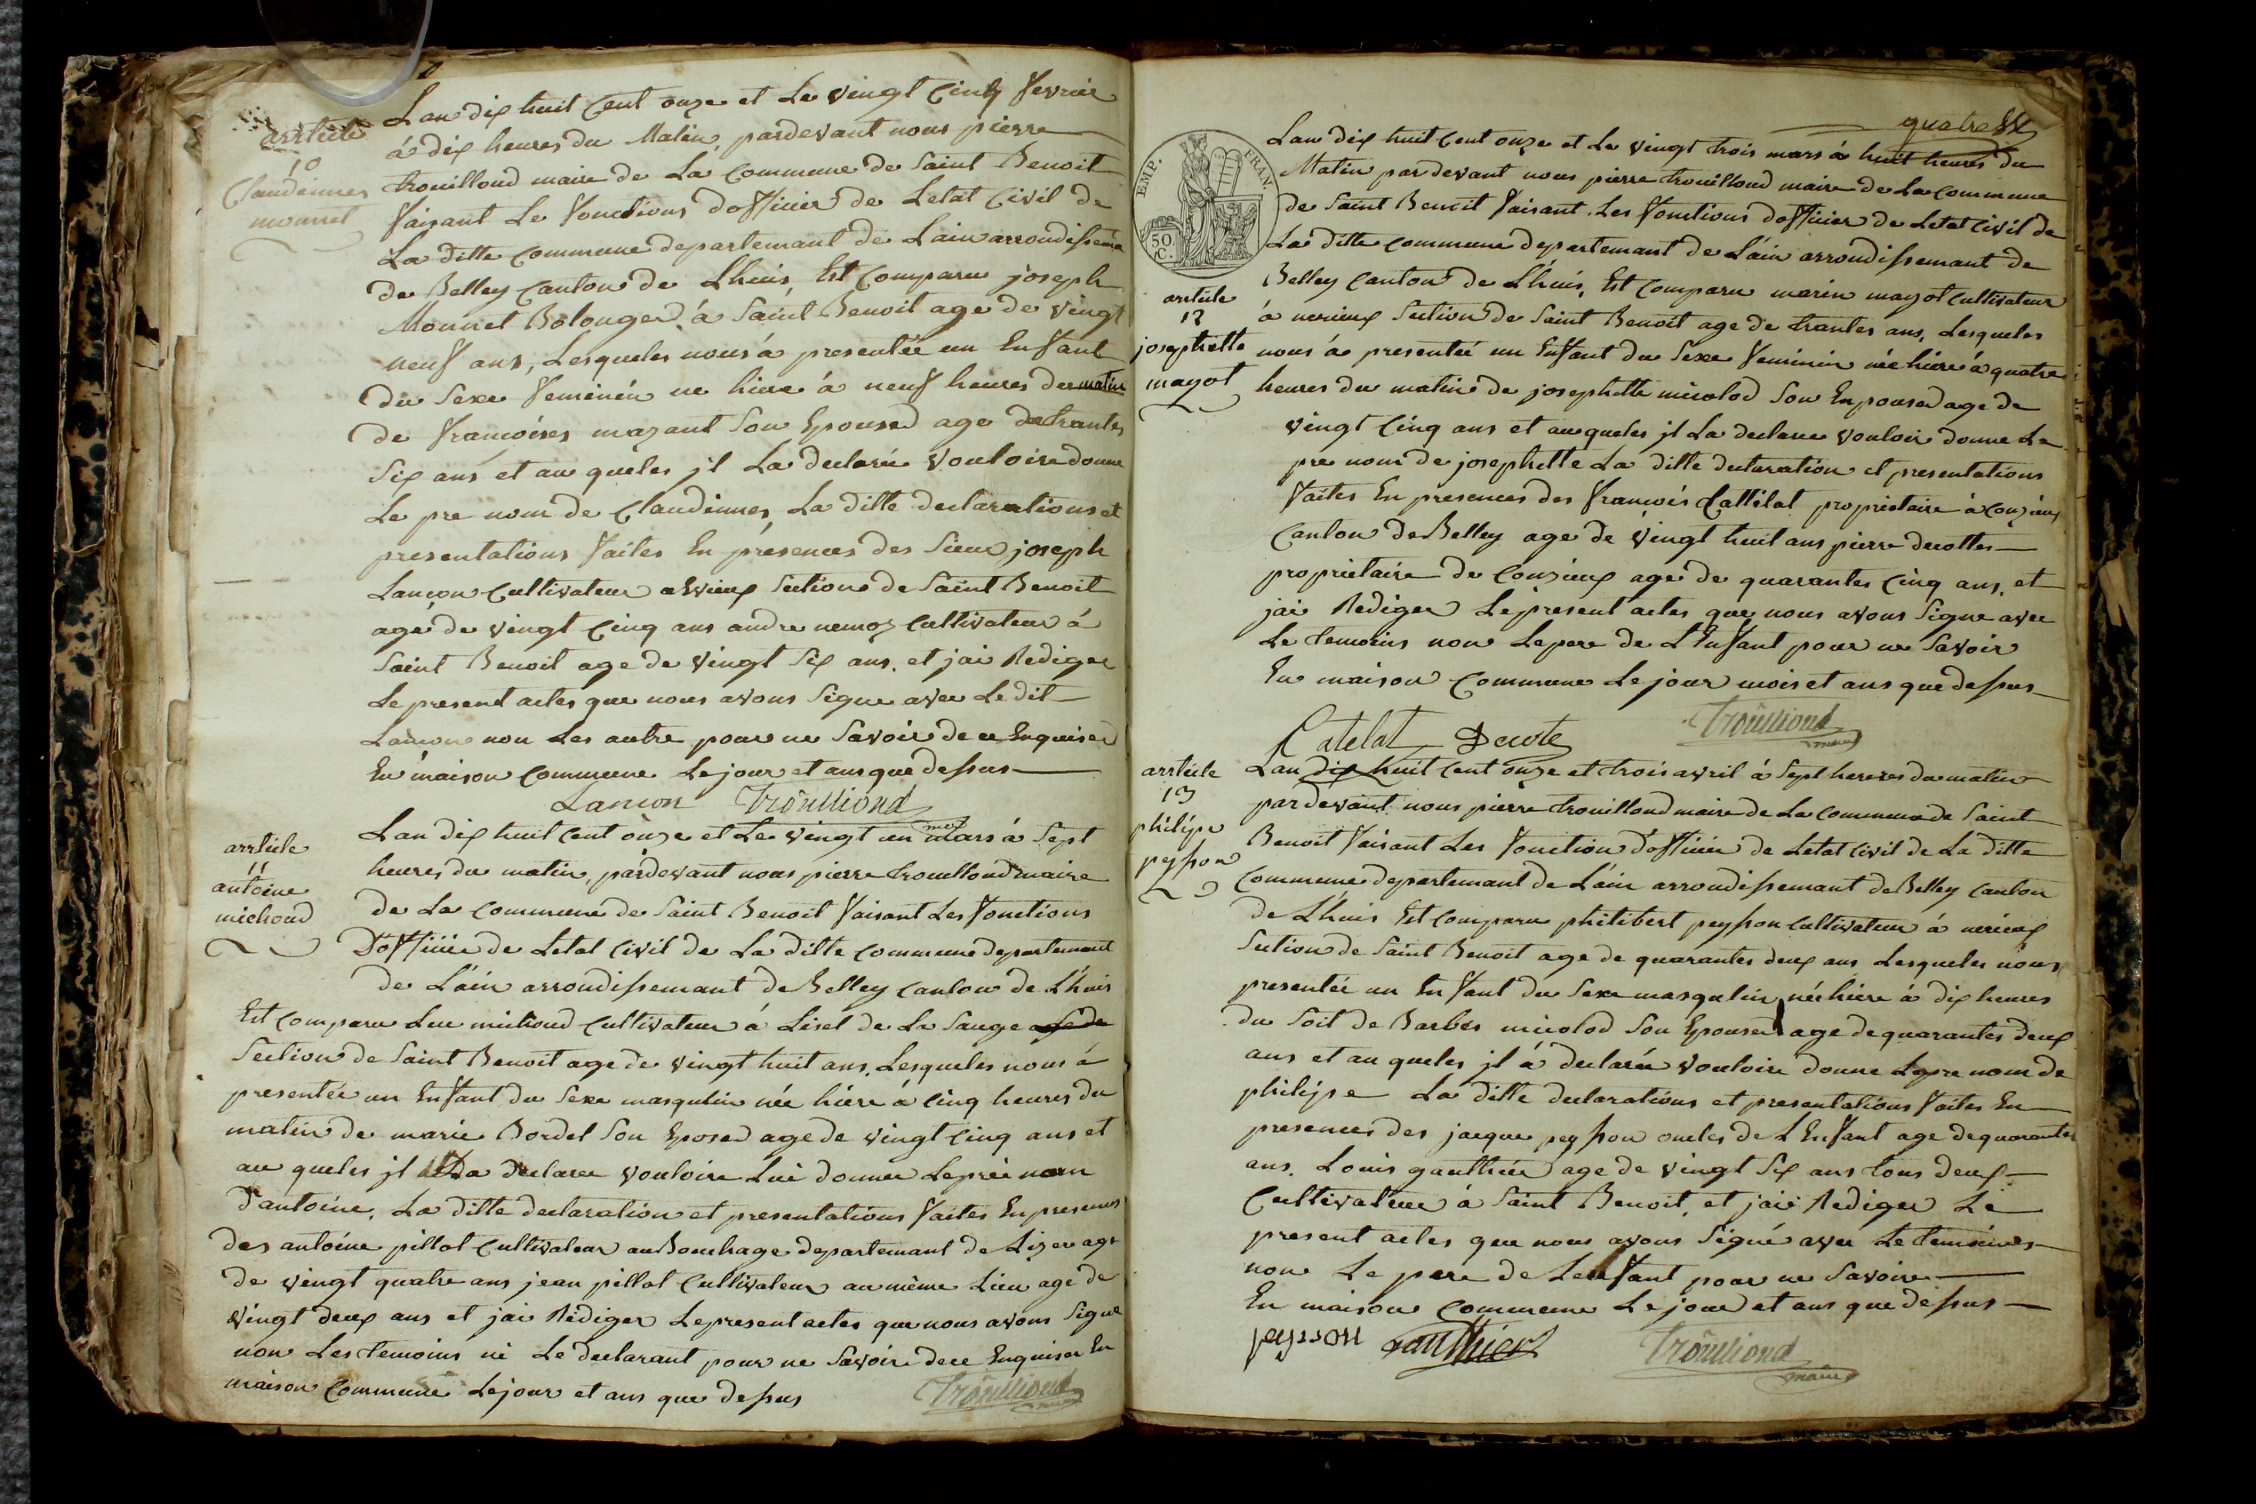 arsticle
10
Claudinnes
monnet
Lan dix huit Cent onze et Le vingt Cinq fevrier
á dix heures du Matin, pardevant nous pierre
trouilloud maire de La Commune de Saint Benoit
faisant Le fonctions dofficier de Letat Civil de
La ditte Commune departemant de Lain arrondissema
de Belley Canton de Lhuis, Est Comparu joseph
Monnet Bolonger á Saint Benoit age de vingt
neuf ans, Lesqueles nous á presentée un Enfant
du Sexe feminin ne hiere á neuf heures du matin
de francoises mazant Son Epouse age de trantes
Six ans et au queles jl La declaré vouloire donne
Le pre nom de Claudinnes, La ditte declarations et
presentations faites En presences des Sieur joseph
Lancon Cultivateur a Evieux Sections de Saint Benoit
agé de vingt Cinq ans andre nemoz Cultivateur á
Saint Benoit age de vingt Six ans. et jai Rediger
Le present actes que nous avons Signe avec Le dit
Lancon non Les autre pour ne Savoir de ce Enquiser
En maison Commune Le jour et ans que dessus
Lancon Troûilliond
arsticle
11
antoine
michoud
Lan dix huit Cent onze et Le vingt un mars á Sept
heures du matin, pardevant nous pierre trouilloud maire
de La Commune de Saint Benoit faisant Les fonctions
Dofficiée de Letat Civil de La ditte Commune departemant
de L'áin arrondissemant de Belley Canton de Lhuis
Est Comparu Luc michoud Cultivateur á Liset de La Sauge age de
Section de Saint Benoit age de vingt huit ans. Lesqueles nous á
presentée un Enfant du Sexe masqulin née hiere á Cinq heures du
matin de marie Bordel Son Eposé age de vingt Cinq ans et
au queles jl La declarer vouloire Lui donner Le pré nom
D'antoine. La ditte declaration et presentations faites En presences
des antoine pillot Cultivateur au Bouchage departemant de Lizere age
de vingt quatre ans jean pillot Cultivateur au même Lieu age de
vingt deux ans et jai Rédiger Le present actes que nous avons Signe
non Les temoins ni Le declarant pour ne Savoir de ce Enquiser En
maison Commune Le jour et ans que dessus
Troûilliond
maire
quatre
EMP. FRAN.
50
C.
Lan dix huit Cent onze et Le vingt trois mars á huit heures du
Matin par devant nous pierre trouilloud maire de La Commune
de Saint Benoit faisant Les fonctions dofficier de Letat Civil de
La ditte Commune departemant de Lain arrondissemant de
Belley Canton de Lhuis, Est Comparu marin mayot Cultivateur
arsticle
12
josephette
mayot
á nerieux Section de Saint Benoit age de trantes ans, Lesqueles
nous á presentée un Enfant du Sexe feminin née hiere á quatre
heures du matin de josephette micolod Son Enpouse age de
vingt Cinq ans et au queles jl La declaree vouloir donne Le
pre nom de josephette La ditte declaration et presentations
faites En presences des francois Cattélat proprietaire á Conzieux
Canton de Belley age de vingt huit ans pierre decottes
proprietaire de Conzieux age de quarantes Cinq ans, et
jai Rediger Le present actes que nous avons Signe avec
Le temoins non Le pere de L'Enfant pour ne Savoir
En maison Commune Le jour mois et ans que dessus
Catelat Decote Troûilliond
maire
arsticle
13
philipe
peysson
Lan dix huit Cent onze et trois avril á Sept heures du matin
par devant nous pierre trouilloud maire de La Commune de Saint
Benoit faisant Les fonction d'officiée de Letat Civil de La ditte
Commune departemant de L'áin arrondissemant de Belley Canton
de Lhuis Est Comparu philibert peysson Cultivateur á nerieux
Section de Saint Benoit age de quarantes deux ans Lesqueles nous
presentée un Enfant du Sexe masqulin née hiere á dix heures
du Soit de Barbes micolod Son Epouse age de quarantes deux
ans et au queles jl á declarée vouloire donne Le pre nom de
philipe La ditte declarations et presentations faites En
presences des jacque peysson oncles de L'Enfant age de quarantes
ans. Louis gauthiée age de vingt Six ans tous deux
Cultivateur á Saint Benoit, et jai Rediger Le
present actes que nous avons Signé avec Le temoines
non Le pere de Lenfant pour ne Savoire
En maison Commune Le jour et ans que dessus
peysson Gauthier Troûilliond
maire